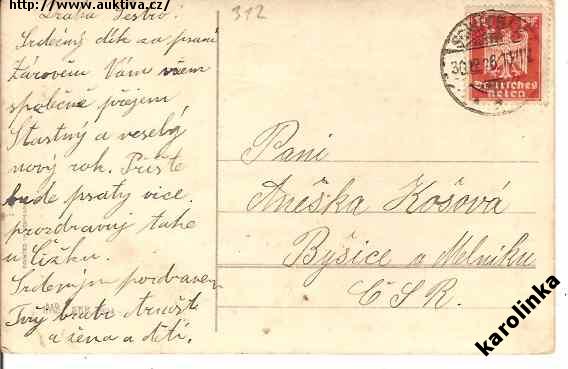 https://www.auktiva.cz/
Drahá Sestro!
Srdečný dík za psaní
Zároveň Vám všem
společně přejem
Šťastný a veselý
nový rok. Příšte
bude psaty vice.
prozdravuj tahe
u Čížku.
Srdečným pozdravem
Tvůj bratr
a žena a děti.
312
30.12.26.
Deutsches
Reich
Paní
Anéška Košová
Byšice u Melníku
ČSR.
karolinka